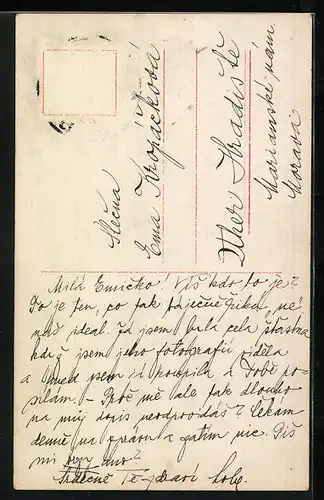 Slečna
Ema Kropáčková
Uher. Hradiště
Mariánské nám.
Morava
Milá Emičko! Víš kdo to je?
To je ten, co tak báječně říká „né"
náš ideal. Já jsem byla celá šťastna
když jsem jeho fotografii viděla
a hned jsem ji koupila a Tobě po-
sílám. – Proč mě ale tak dlouho
na můj dopis neodpovídáš? Čekám
denně na zprávu a zatím nic. Piš
mi brzy ano?
Srdečně Tě zdraví